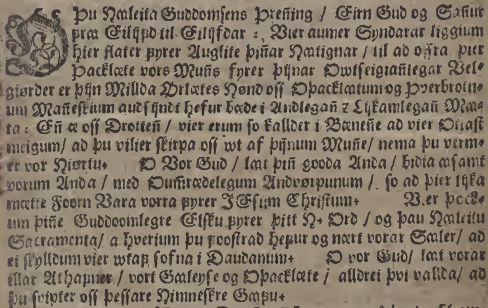 Þu Næleita Guddomsens Þreñing / Eirn Gud og Sañur
fra Eilijfd til Eilijfdar : Vier aumer Syndarar liggium
hier flater fyrer Auglite þijnar Hætignar / til ad offra þier
Þacklæte vors Muñs fyrer þijnar Owtseigianlegar Vel-
giørder er þijn Millda Ørlætes Hønd oss Oþacklatum og Þverbrotn-
um Mañeskium audsyndt hefur bæde i Andlegañ z Lijkamlegañ Maa-
ta : Eñ æ oss Drotteñ / vier erum so kallder i Bæneñe ad vier Ottast
meigum / ad þu vilier skirpa oss wt af þijnum Muñe / nema þu verm-
er vor Hiørtu. O Vor Gud / læt þiñ gooda Anda / bidia æsamt
vorum Anda / med Oumrædelegum Andvørpunum / so ad þier lijka
mætte Foorn Vara vorra fyrer JEsum Christum. Vier þøck-
um þiñe Guddoomlegre Elsku fyrer þitt H. Ord / og þau Hæleitu
Sacramenta / a hverium þu foostrad hefur og nært vorar Sæler / ad
ei skylldum vier wtaf sofna i Daudanum. O vor Gud / læt vorar
illar Athafner / vort Gæleyse og Oþacklæte / alldrei þvi vallda / ad
þu svipter oss þessare Himneskre Gaafu.